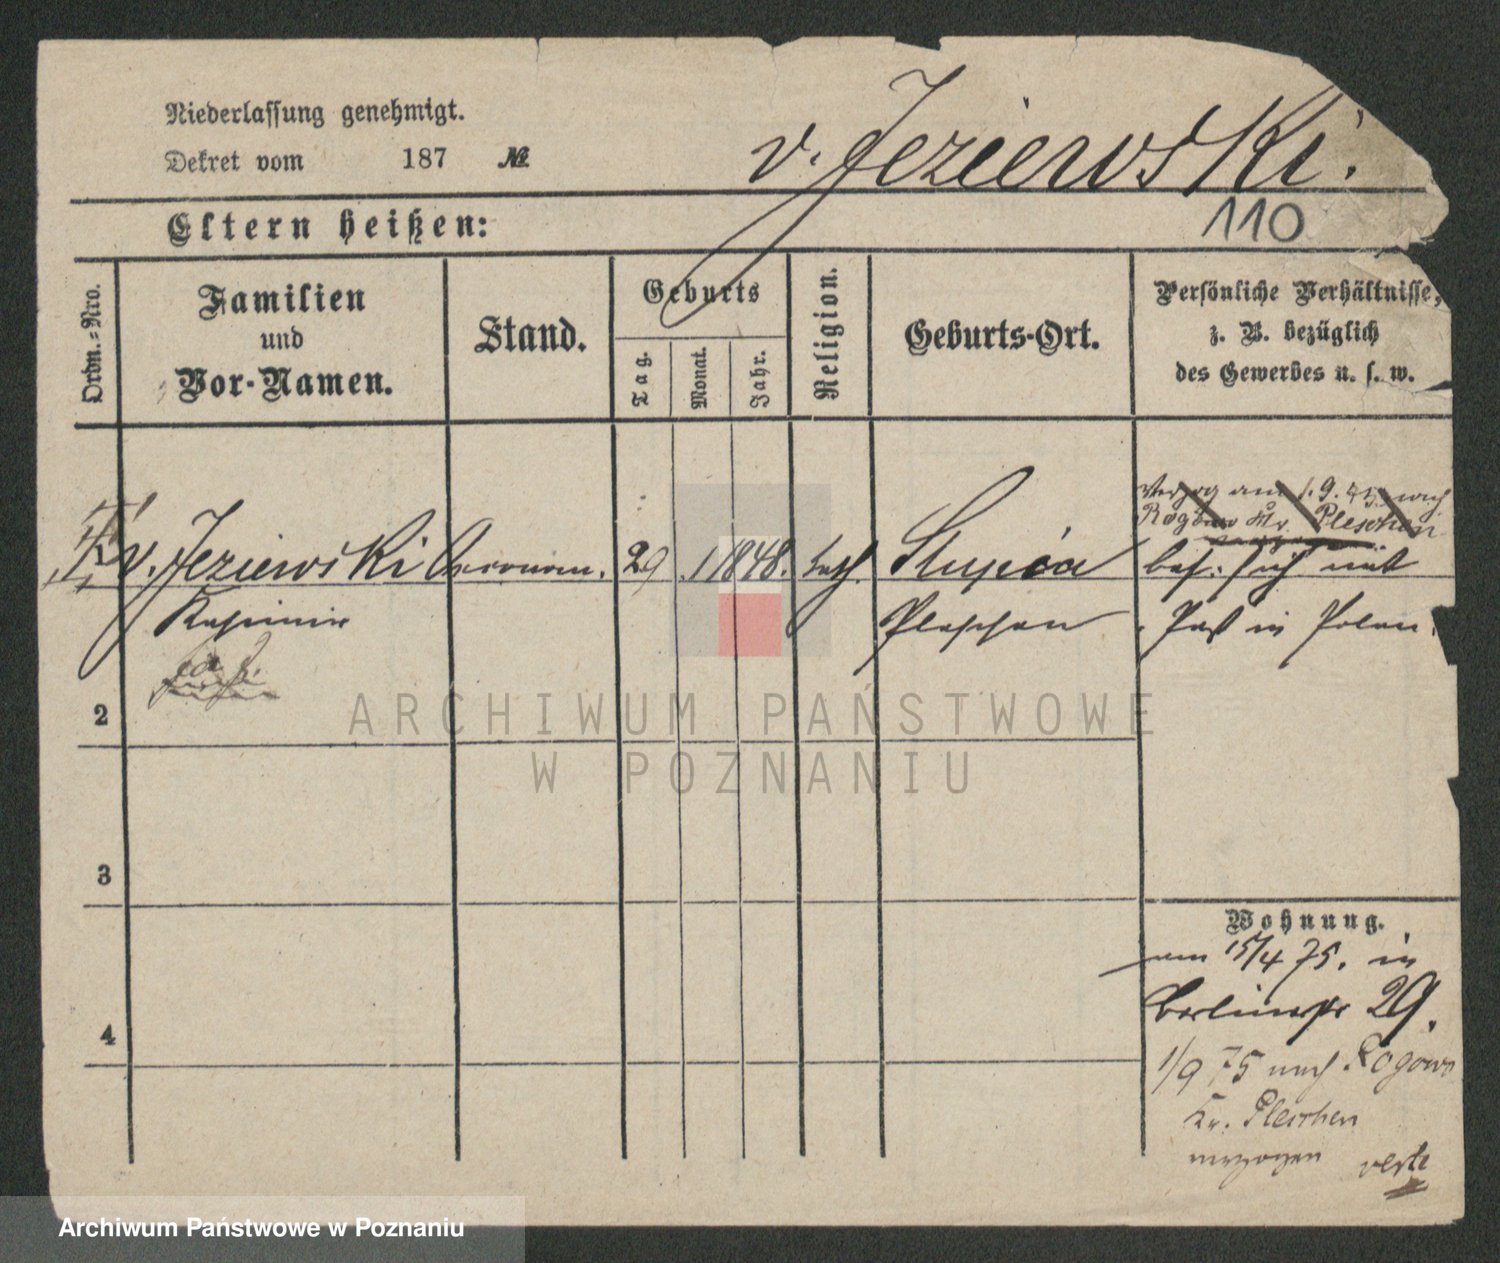 Niederlassung genehmigt.
Dekret vom 187 №
v. Jeziewski.
110
Eltern heißen:
Ordn.-Nro.
Familien
und
Vor-Namen.
Stand.
Geburts
Tag.
Monat.
Jahr.
Religion.
Geburts-Ort.
Persönliche Verhältnisse,
z. B. bezüglich
des Gewerbes u. s. w.
Verzog am 1.9.75 nach
Rogowo Kr. Pleschen
v. Jeziewski Oeconom. 29 1 1848. kath. Slupia
bef. sich mit
Kasimir
Pleschen
Paß in Polen.
2
3
4
Wohnung.
am 15/4 75. in
Berlinerstr 29.
1/9 75 nach Rogowo
Kr. Pleschen
verzogen
ARCHIWUM PAŃSTWOWE
W POZNANIU
Archiwum Państwowe w Poznaniu